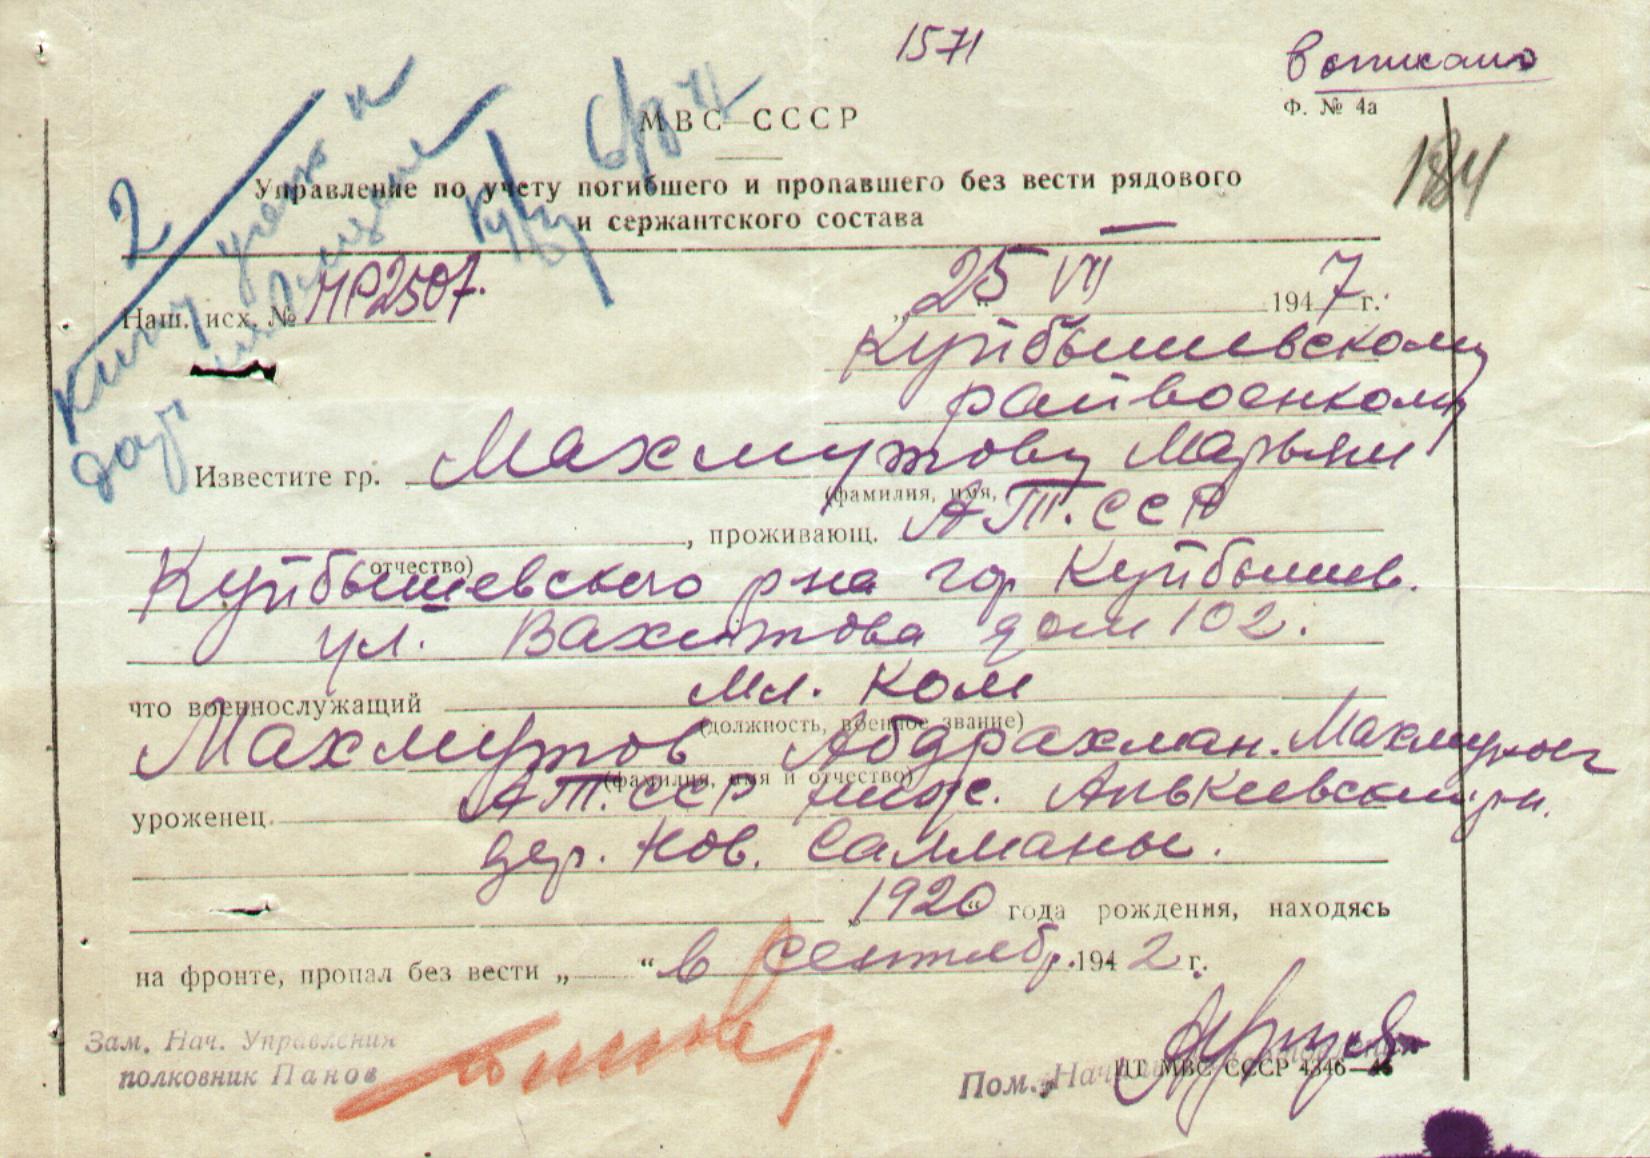 1571
Вописано
Ф. № 4а
184
МВС СССР
Управление по учету погибшего и пропавшего без вести рядового
и сержантского состава
2
Наш. исх. № НР2507.
„25“ VII 1947 г.
Куйбышевскому
райвоенкому
Известите гр. Махмутову Марьям
(фамилия, имя,
, проживающ. АТ.ССР
отчество)
Куйбышевского р-на гор Куйбышев.
ул. Вахитова дом 102.
что военнослужащий мл. ком
(должность, военное звание)
Махмутов Абдрахман. Махмутов
(фамилия, имя и отчество)
уроженец АТ.ССР Алькеевский рн.
дер. Нов. Салманы.
„1920“ года рождения, находясь
на фронте, пропал без вести „ “ в сентябр. 1942 г.
Зам. Нач. Управления
полковник Панов
Пом. Нач.
ЦТ МВС СССР 4346—46